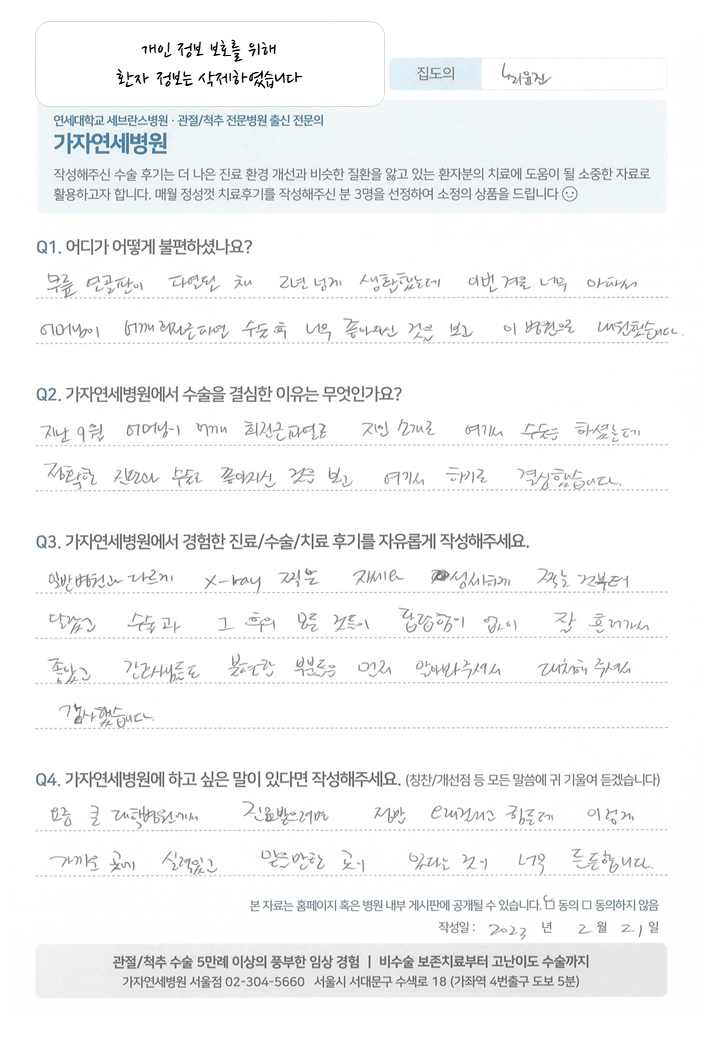 개인 정보 보호를 위해
환자 정보는 삭제하였습니다
집도의
윤진
연세대학교 세브란스병원 · 관절/척추 전문병원 출신 전문의
가자연세병원
작성해주신 수술 후기는 더 나은 진료 환경 개선과 비슷한 질환을 앓고 있는 환자분의 치료에 도움이 될 소중한 자료로
활용하고자 합니다. 매월 정성껏 치료후기를 작성해주신 분 3명을 선정하여 소정의 상품을 드립니다
Q1. 어디가 어떻게 불편하셨나요?
무릎 연골판이 파열된 채 2년 넘게 생활했는데 이번 겨울 너무 아파서
어머님이 어깨 회전근파열 수술 후 너무 좋아지신 것을 보고 이 병원으로 내원했습니다.
Q2. 가자연세병원에서 수술을 결심한 이유는 무엇인가요?
지난 9월 어머님이 어깨 회전근파열로 지인 소개로 여기서 수술을 하셨는데
정확한 진료와 수술로 좋아지신 것을 보고 여기서 하기로 결심했습니다.
Q3. 가자연세병원에서 경험한 진료/수술/치료 후기를 자유롭게 작성해주세요.
일반병원과 다르게 x-ray 찍을 자세나 섬세하게 찍는 것부터
달랐고 수술과 그 후의 모든 것들이 답답함이 없이 잘 흘러가서
좋았고 간호사님들도 불편한 부분을 먼저 알아봐주셔서 대처해 주셔서
감사했습니다.
Q4. 가자연세병원에 하고 싶은 말이 있다면 작성해주세요. (칭찬/개선점 등 모든 말씀에 귀 기울여 듣겠습니다)
요즘 큰 대학병원에서 진료받으려면 절반 힘든데 이렇게
가까운 곳에 실력있고 믿을만한 곳이 있다는 것이 너무 든든합니다.
본 자료는 홈페이지 혹은 병원 내부 게시판에 공개될 수 있습니다. 동의 동의하지 않음
작성일 : 2023 년 2 월 21 일
관절/척추 수술 5만례 이상의 풍부한 임상 경험 | 비수술 보존치료부터 고난이도 수술까지
가자연세병원 서울점 02-304-5660 서울시 서대문구 수색로 18 (가좌역 4번출구 도보 5분)